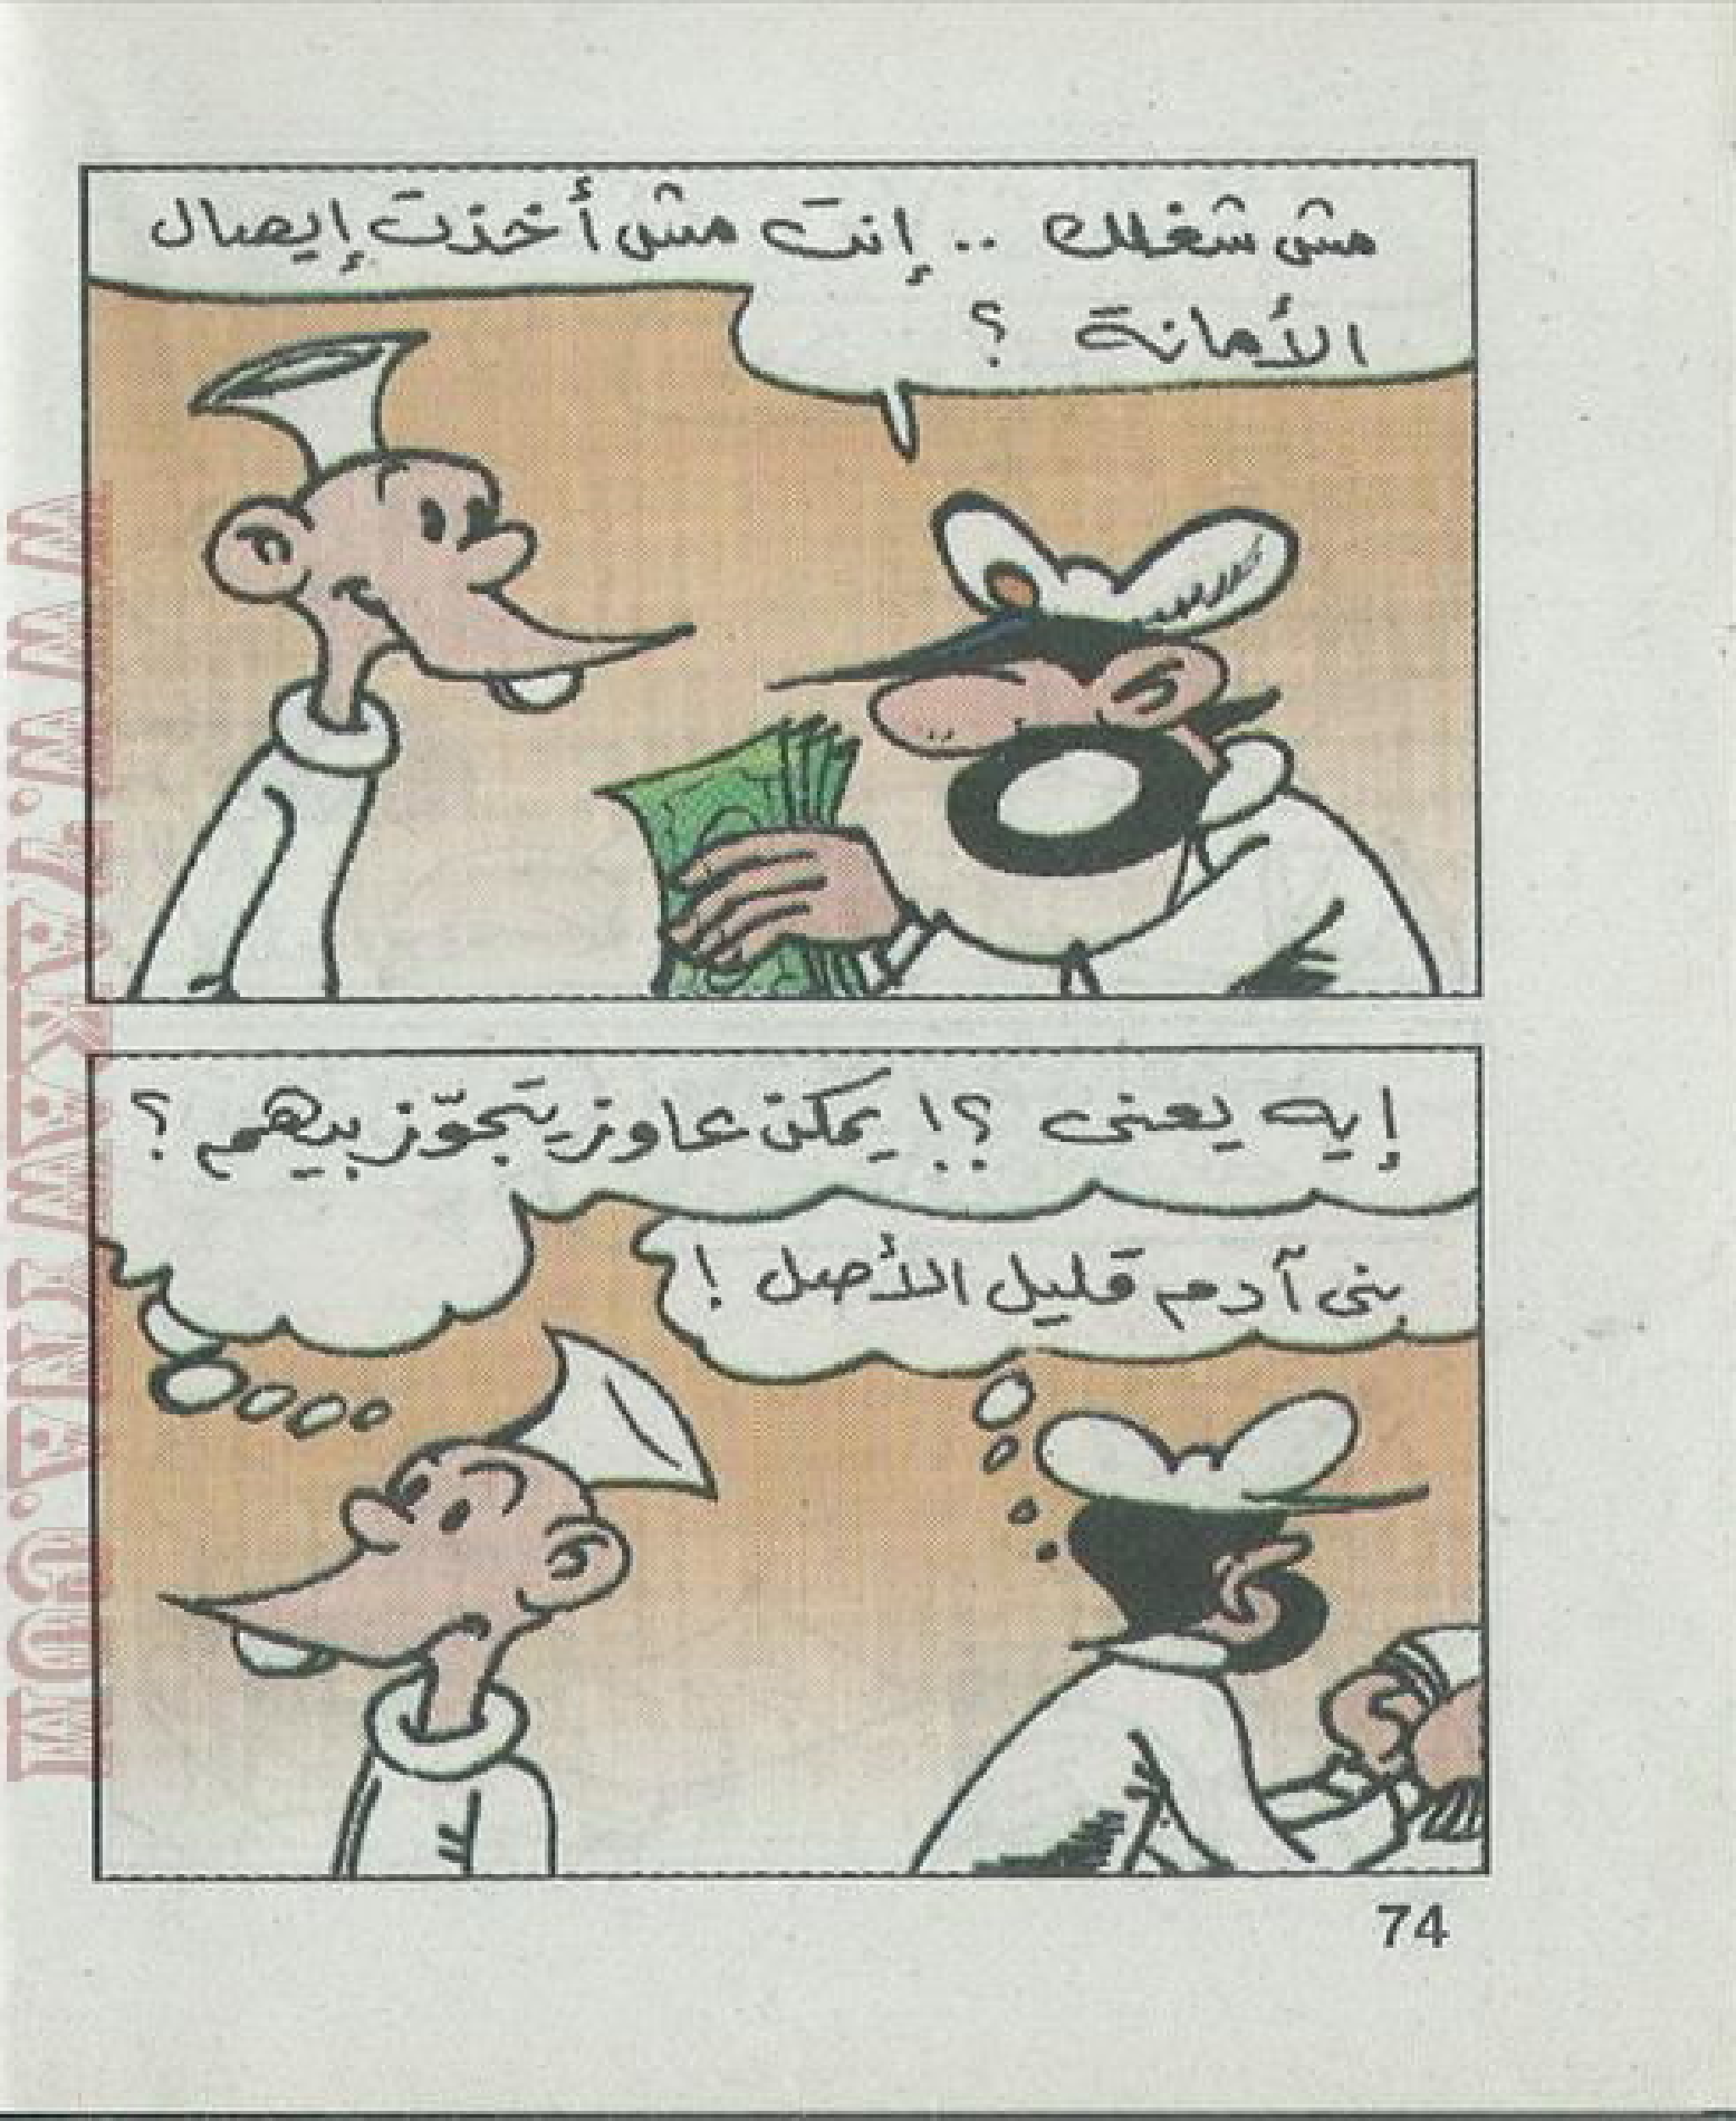 مش شغلك .. إنت مش أخذت إيصال
الأمانة ؟
إيه يعنى ؟! يمكن عاوز يتجوّز بيهم ؟
بنى آدم قليل الأصل !
74
WWW.7AKAWEINA.COM